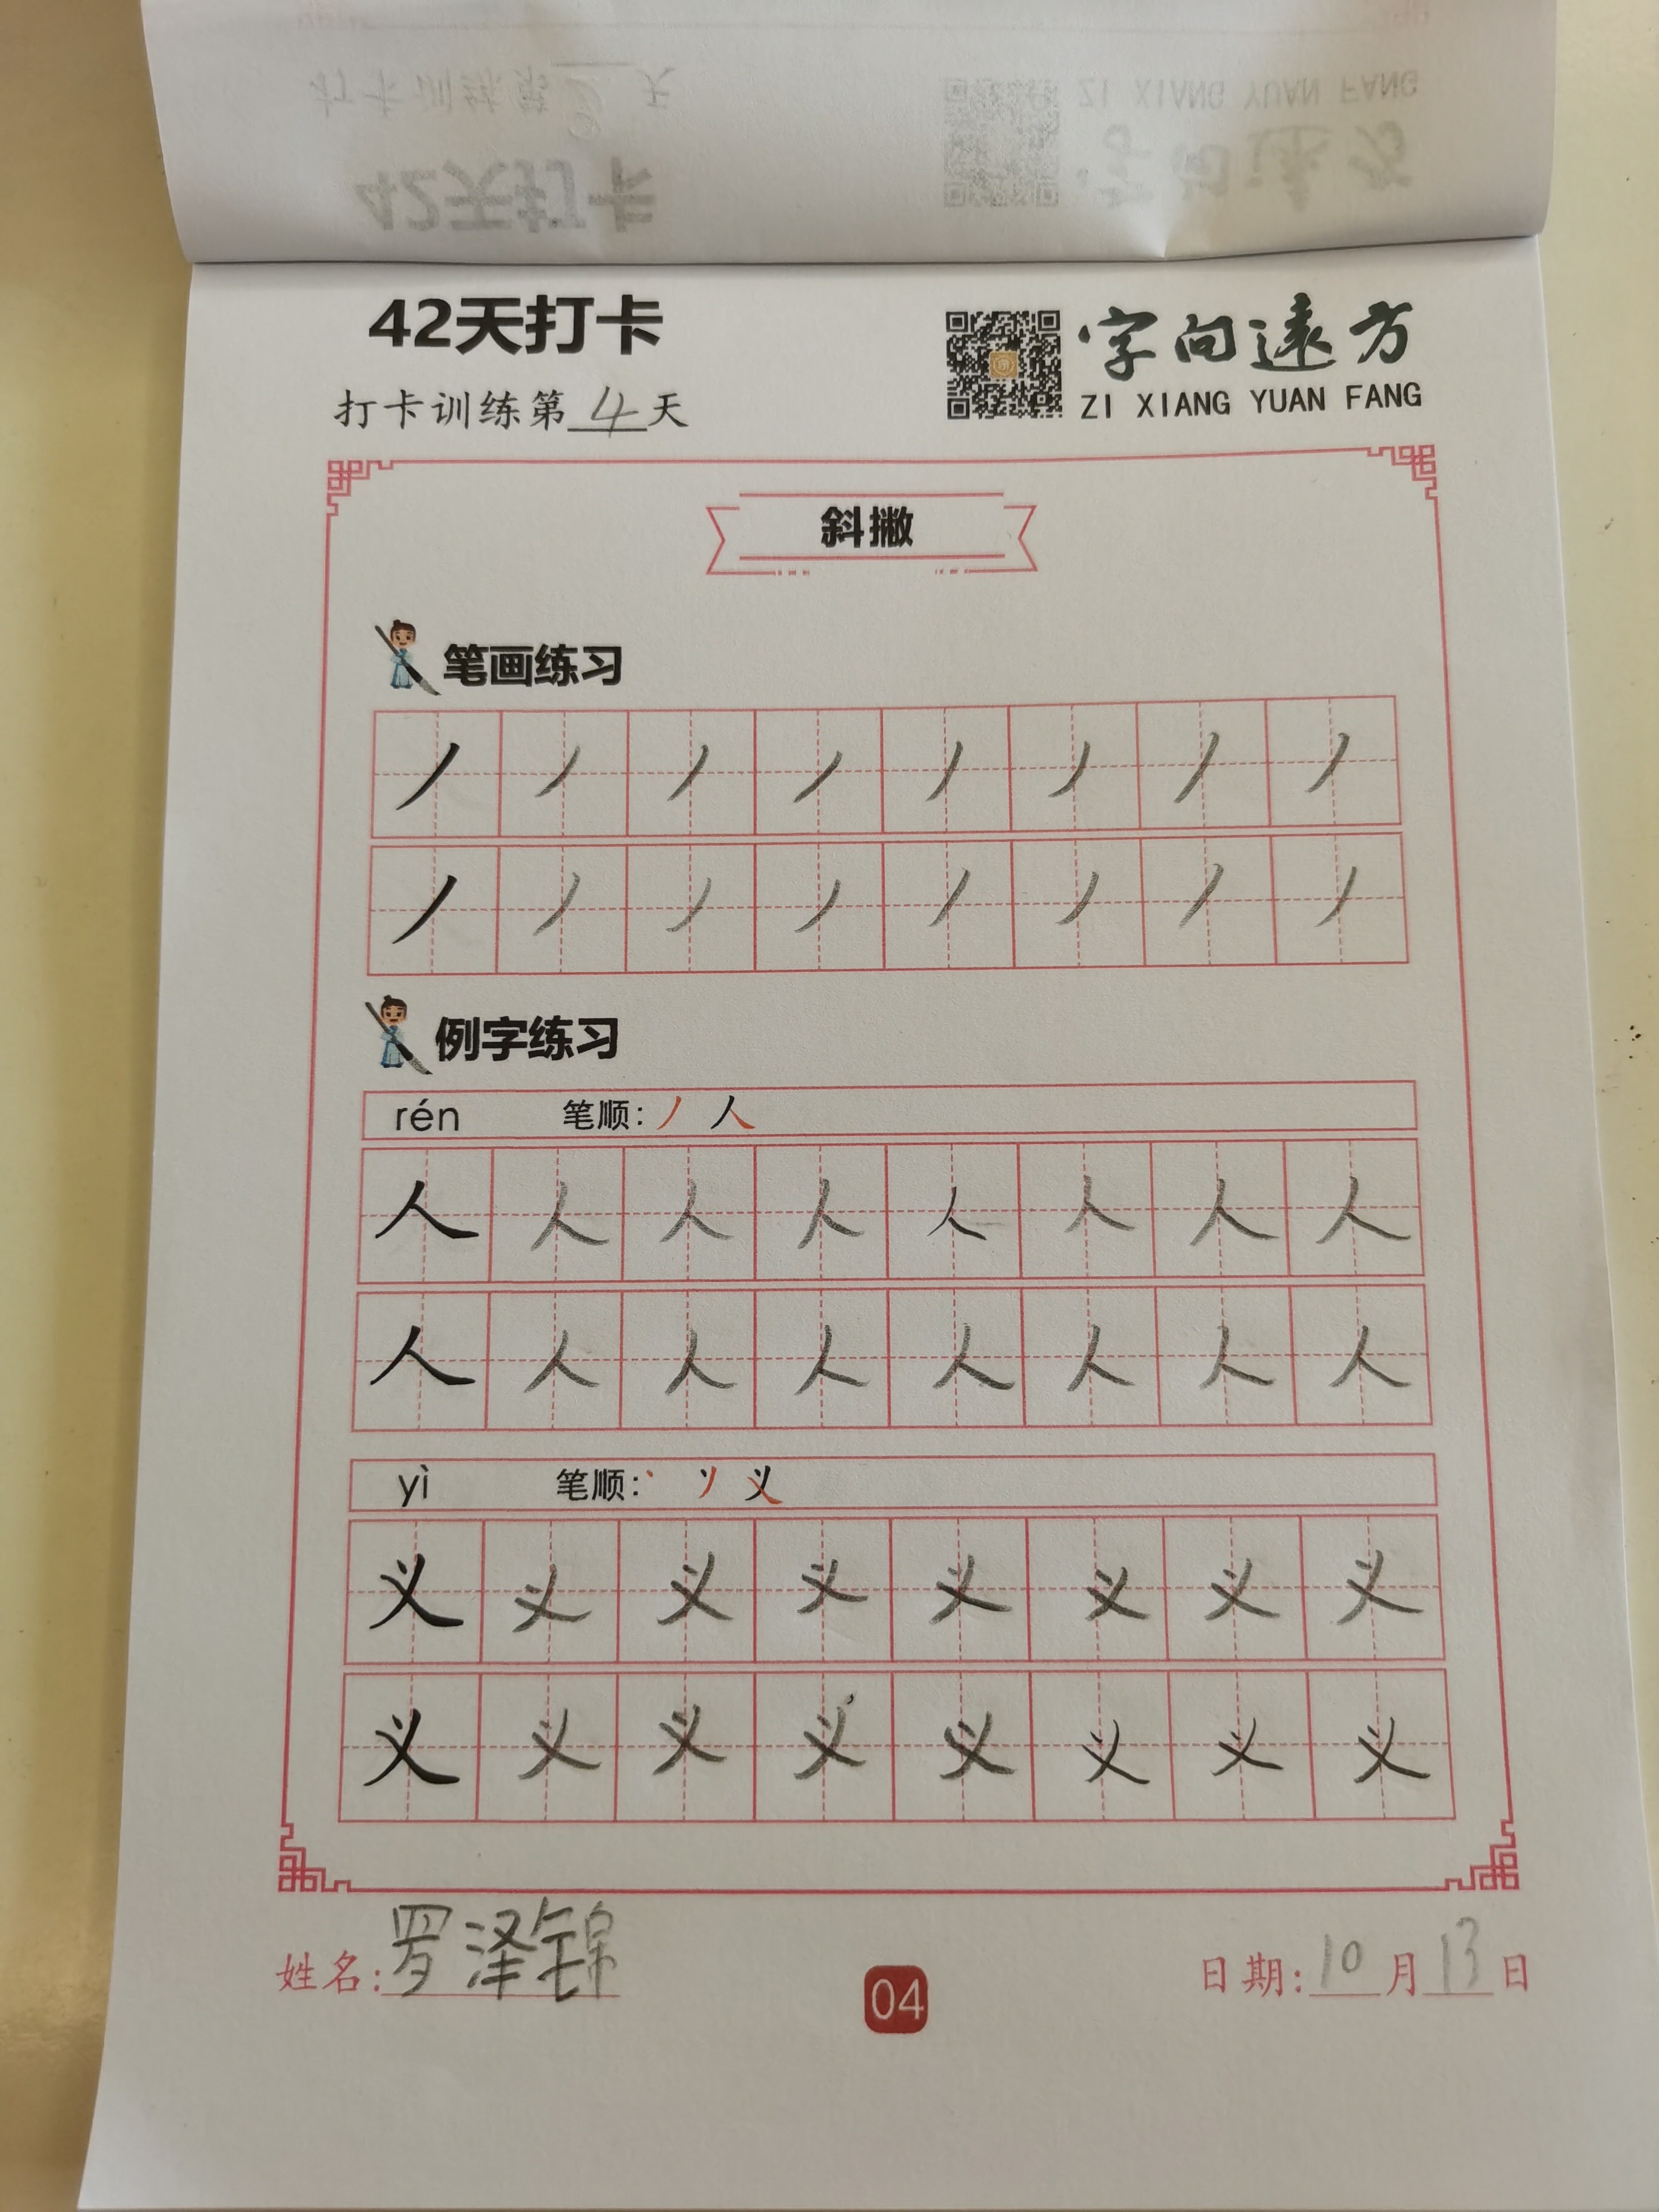 42天打卡
打卡训练第4天
字向远方
ZI XIANG YUAN FANG
斜撇
笔画练习
丿 丿 丿 丿 丿 丿 丿 丿
丿 丿 丿 丿 丿 丿 丿 丿
例字练习
rén 笔顺: 丿 人
人 人 人 人 人 人 人 人
人 人 人 人 人 人 人 人
yì 笔顺: 丶 丷 义
义 义 义 义 义 义 义 义
义 义 义 义 义 义 义 义
姓名: 罗泽锦
04
日期: 10月13日